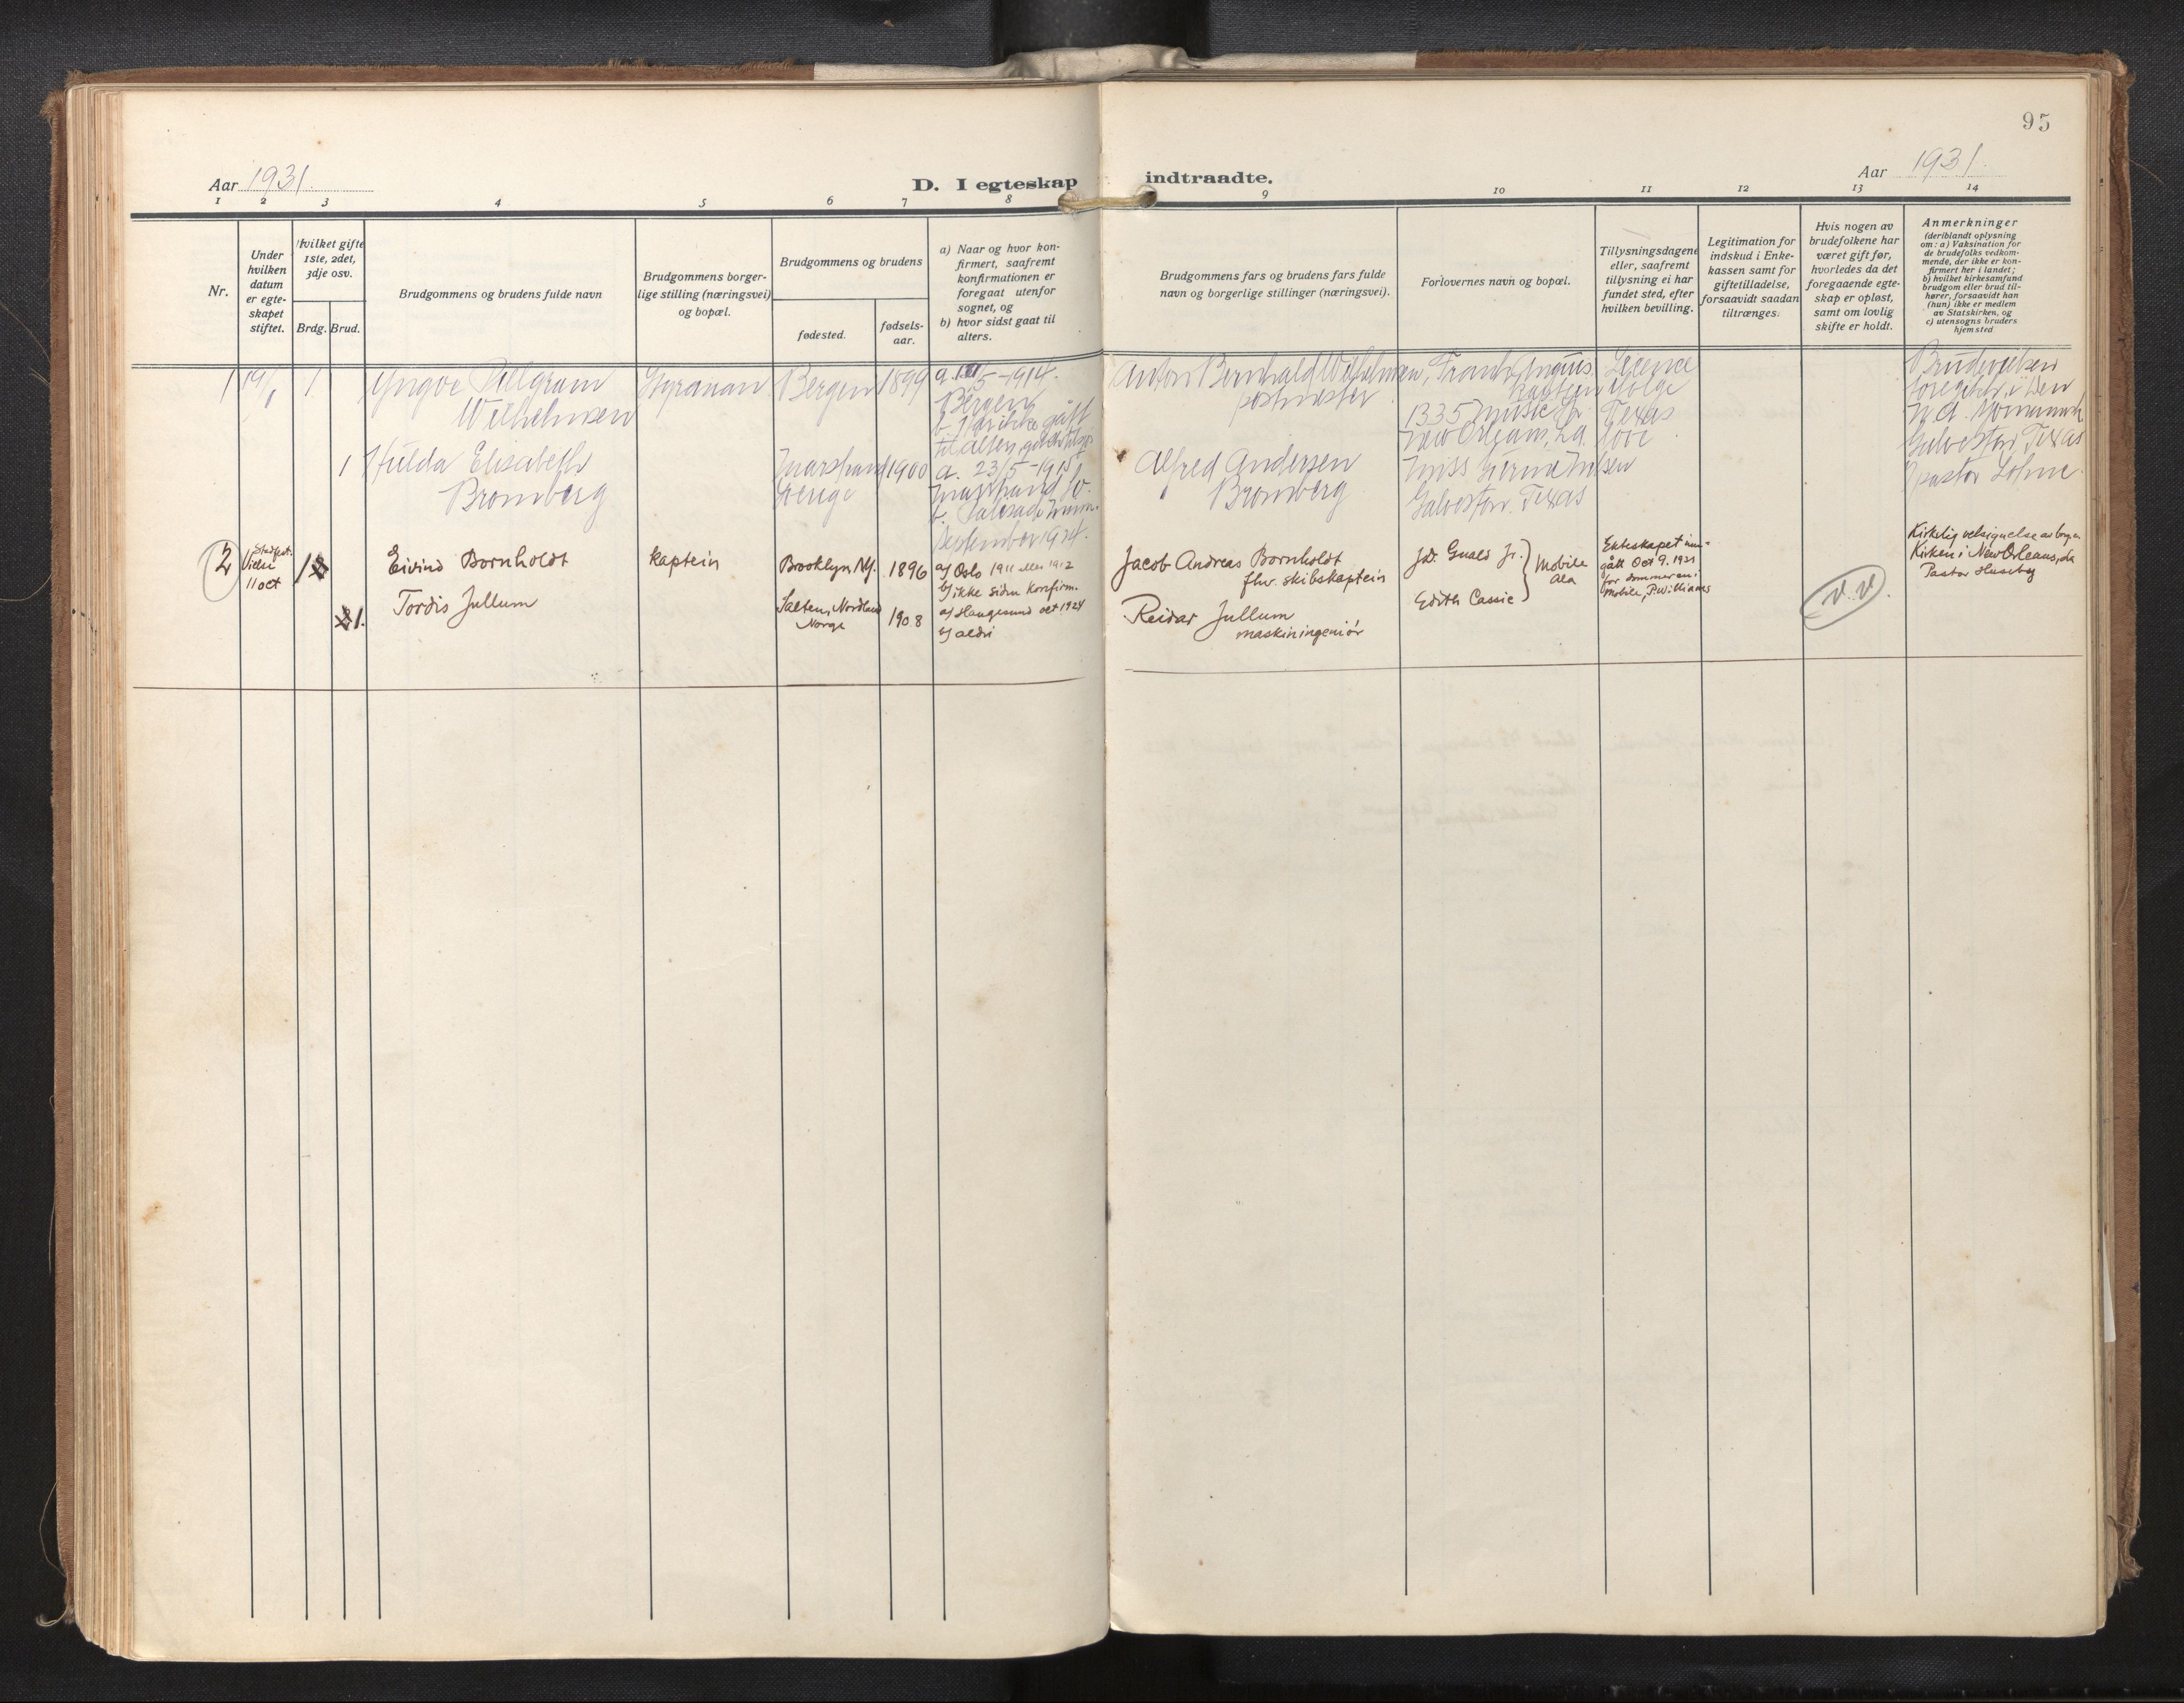 95
Aar 1931.
D. I egteskap indtraadte.
Aar 1931.
1 2 3 4 5 6 7 8 9 10 11 12 13 14
Nr.
Under
hvilken
datum
er egte-
skapet
stiftet.
Hvilket gifte
1ste, 2det,
3dje osv.
Brdg. Brud.
Brudgommens og brudens fulde navn
Brudgommens borger-
lige stilling (næringsvei)
og bopæl.
Brudgommens og brudens
fødested.
fødsels-
aar.
a) Naar og hvor kon-
firmert, saafremt
konfirmationen er
foregaat utenfor
sognet, og
b) hvor sidst gaat til
alters.
Brudgommens fars og brudens fars fulde
navn og borgerlige stillinger (næringsvei).
Forlovernes navn og bopæl.
Tillysningsdagene
eller, saafremt
tillysning ei har
fundet sted, efter
hvilken bevilling.
Legitimation for
indskud i Enke-
kassen samt for
giftetilladelse,
forsaavidt saadan
tiltrænges.
Hvis nogen av
brudefolkene har
været gift før,
hvorledes da det
foregaaende egte-
skap er opløst,
samt om lovlig
skifte er holdt.
Anmerkninger
(deriblandt oplysning
om: a) Vaksination for
de brudefolks vedkom-
mende, der ikke er kon-
firmert her i landet;
b) hvilket kirkesamfund
brudgom eller brud til-
hører, forsaavidt han
(hun) ikke er medlem
av Statskirken, og
c) utensogns bruders
hjemsted
1
19/1
1
Yngve Pillgram
Wilhelmsen
Styrmann
Bergen
1899
5-1914.
Bergen
b. ikke gått
til alters
Anton Bernhard Wilhelmsen,
postmester
Frank Angus.
kaptein
1335 Music St.
New Orleans, La.
Licence
ifølge
Texas
love
Brudevielsen
foregikk i den
Galveston, Texas
pastor Lohne.
1
Hulda Elisabeth
Bromberg
Marstrand
Sverige
1900
a. 23/5-1915
Marstrand Sv.
b.
September 1924.
Alfred Andersen
Bromberg
Miss
Galveston, Texas
2
Stadfest.
Vielse
11 oct
1
Eivind Bornholdt
kaptein
Brooklyn NY.
1896
a) Oslo 1911 eller 1912
b) ikke siden Konfirm.
Jacob Andreas Bornholdt
fhv. skibskaptein
Jd. Guald Jr.
Edith Cassie
Mobile
Ala
Ekteskapet inn-
gått Oct 9. 1931
for dommeren i
Mobile, P. Williams
v.v.
Kirkelig velsignelse av
Kirken i New Orleans, La
Pastor Huseby
1.
Tordis Jullum
Salten, Nordland
Norge
1908
a) Haugesund oct 1924
b) aldri
Reidar Jullum
maskiningeniör